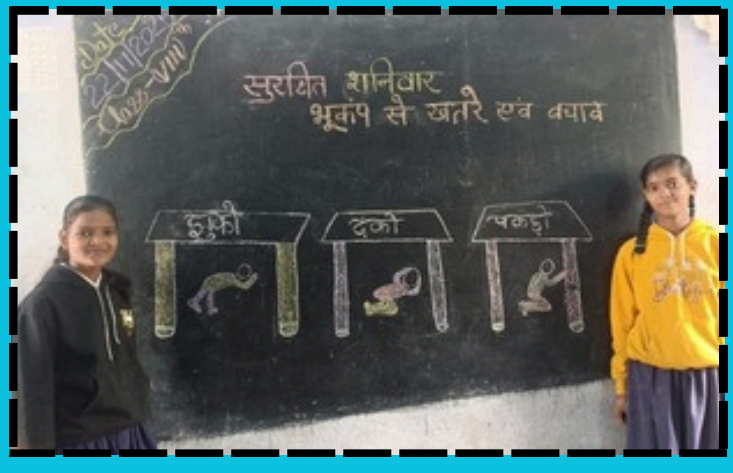 Date
22/11/202
Class-VIII
सुरक्षित शनिवार
भूकंप से खतरे एवं बचाव
झुको
ढको
पकड़ो